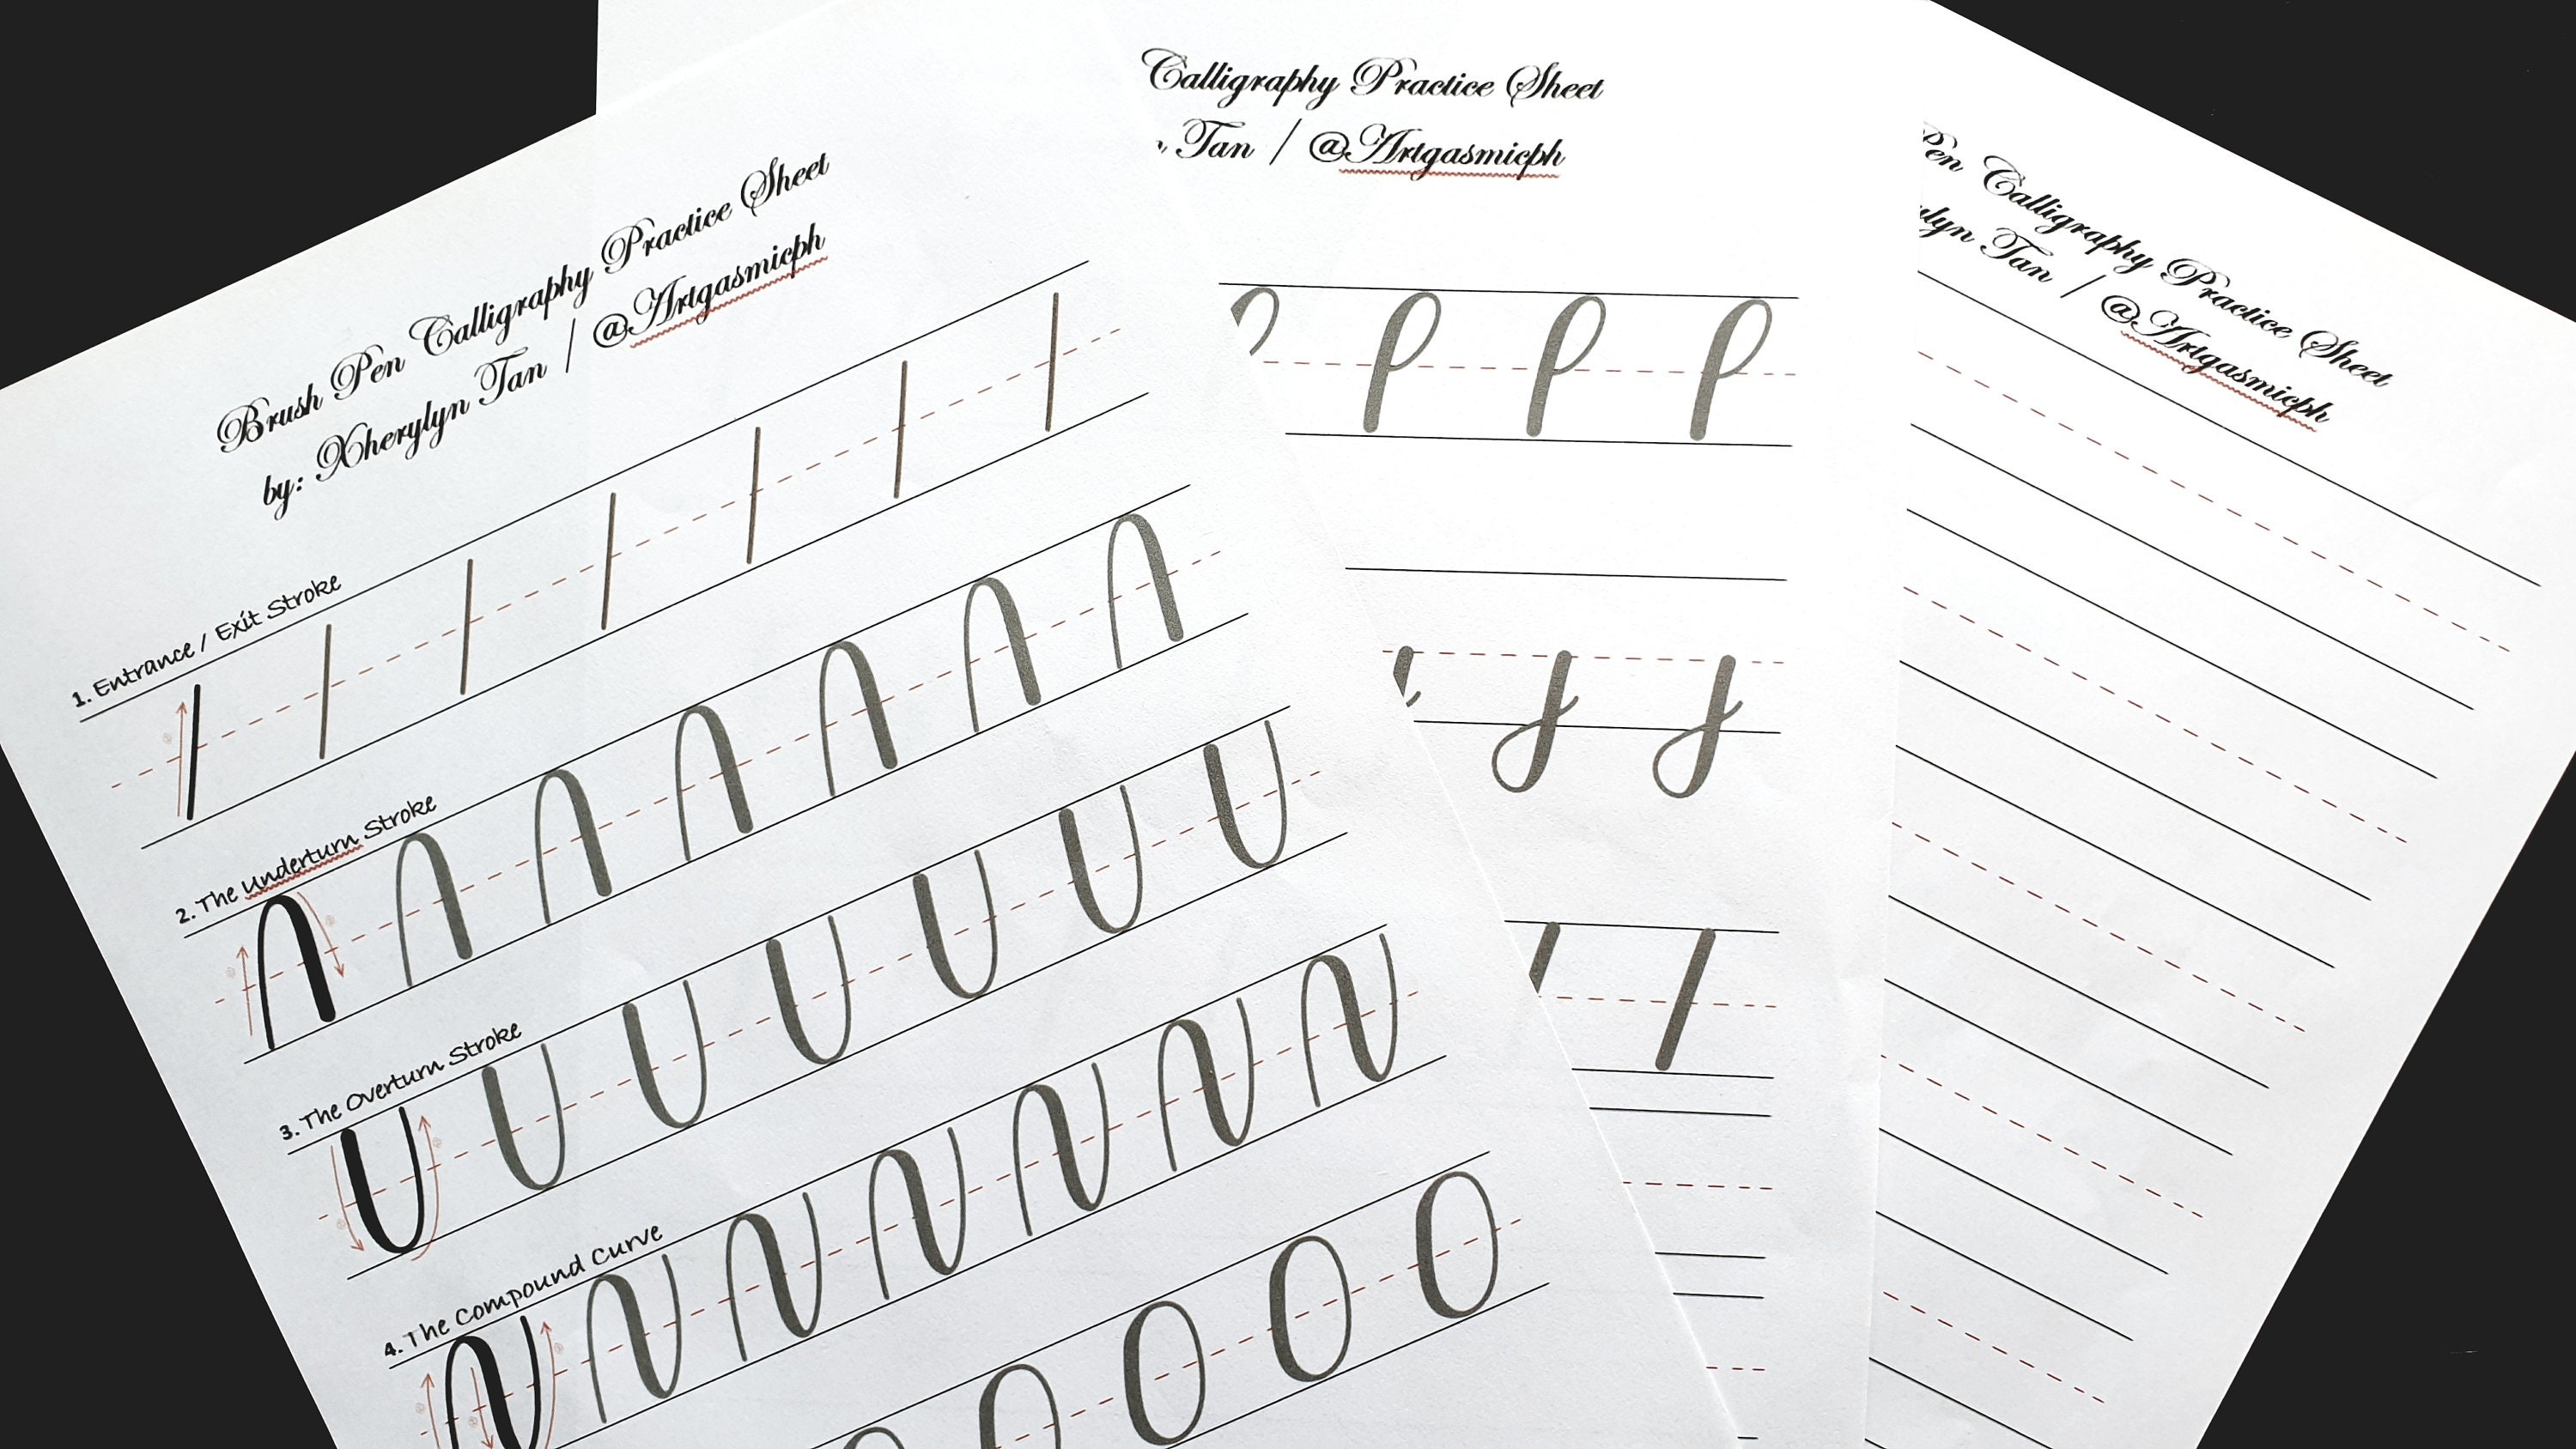 Brush Pen Calligraphy Practice Sheet
by: Xherylyn Tan / @Artgasmicph
1. Entrance / Exit Stroke
2. The Underturn Stroke
3. The Overturn Stroke
4. The Compound Curve
Calligraphy Practice Sheet
Tan / @Artgasmicph
Pen Calligraphy Practice Sheet
Tan / @Artgasmicph